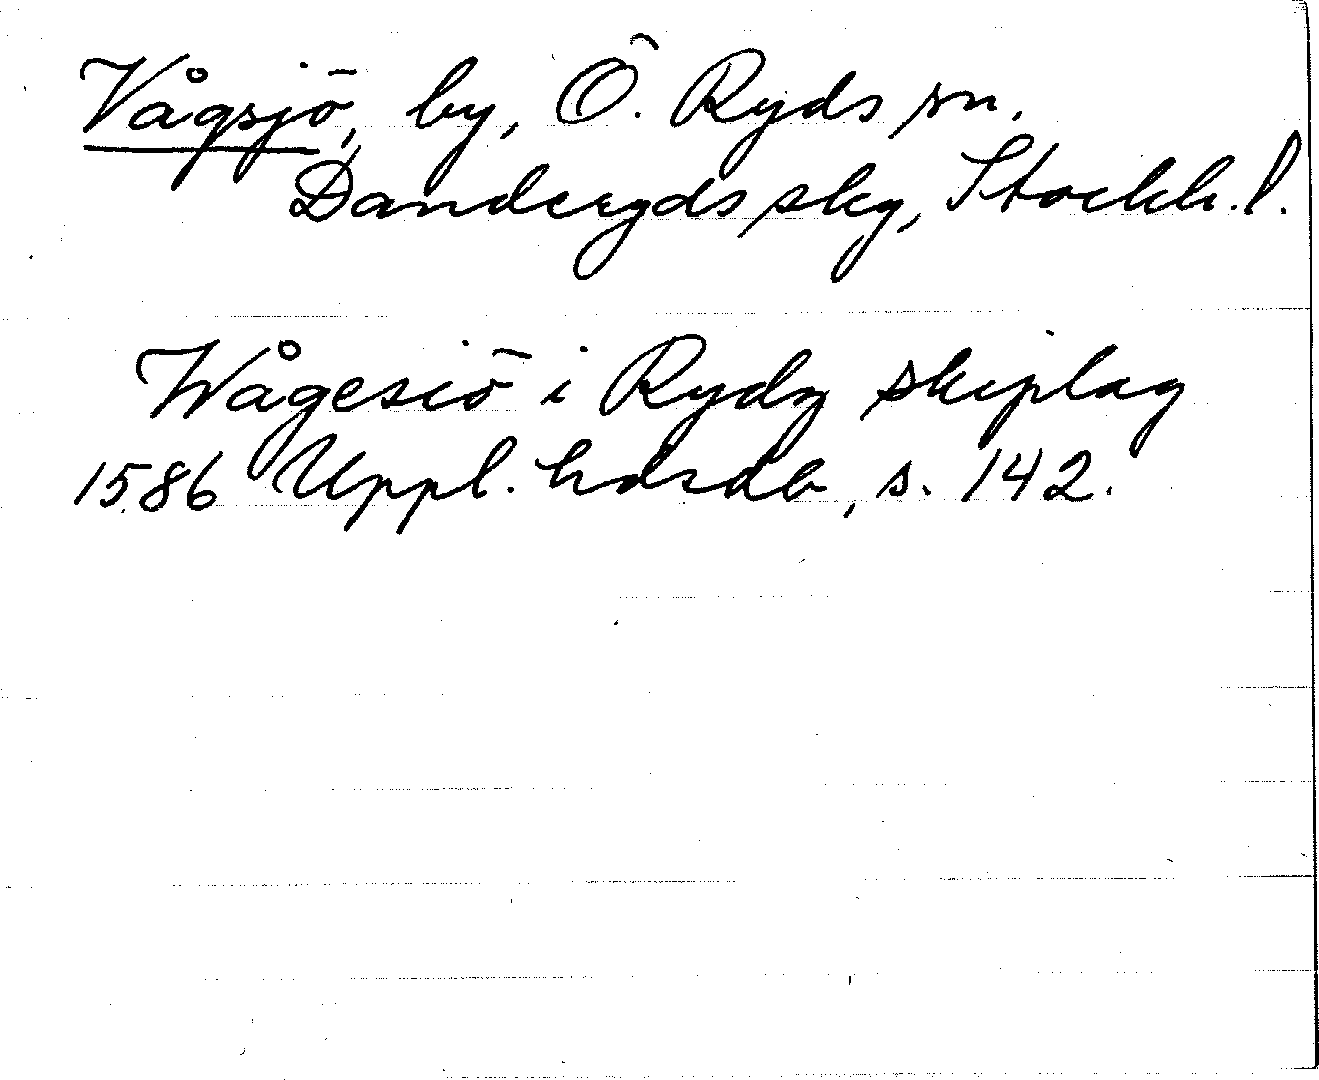 Vågsjö, by, Ö. Ryds sn.
Danderyds skg, Stockh. l.
Wågesiö i Rydz skiplag
1586 Uppl. hdrdb, s. 142.